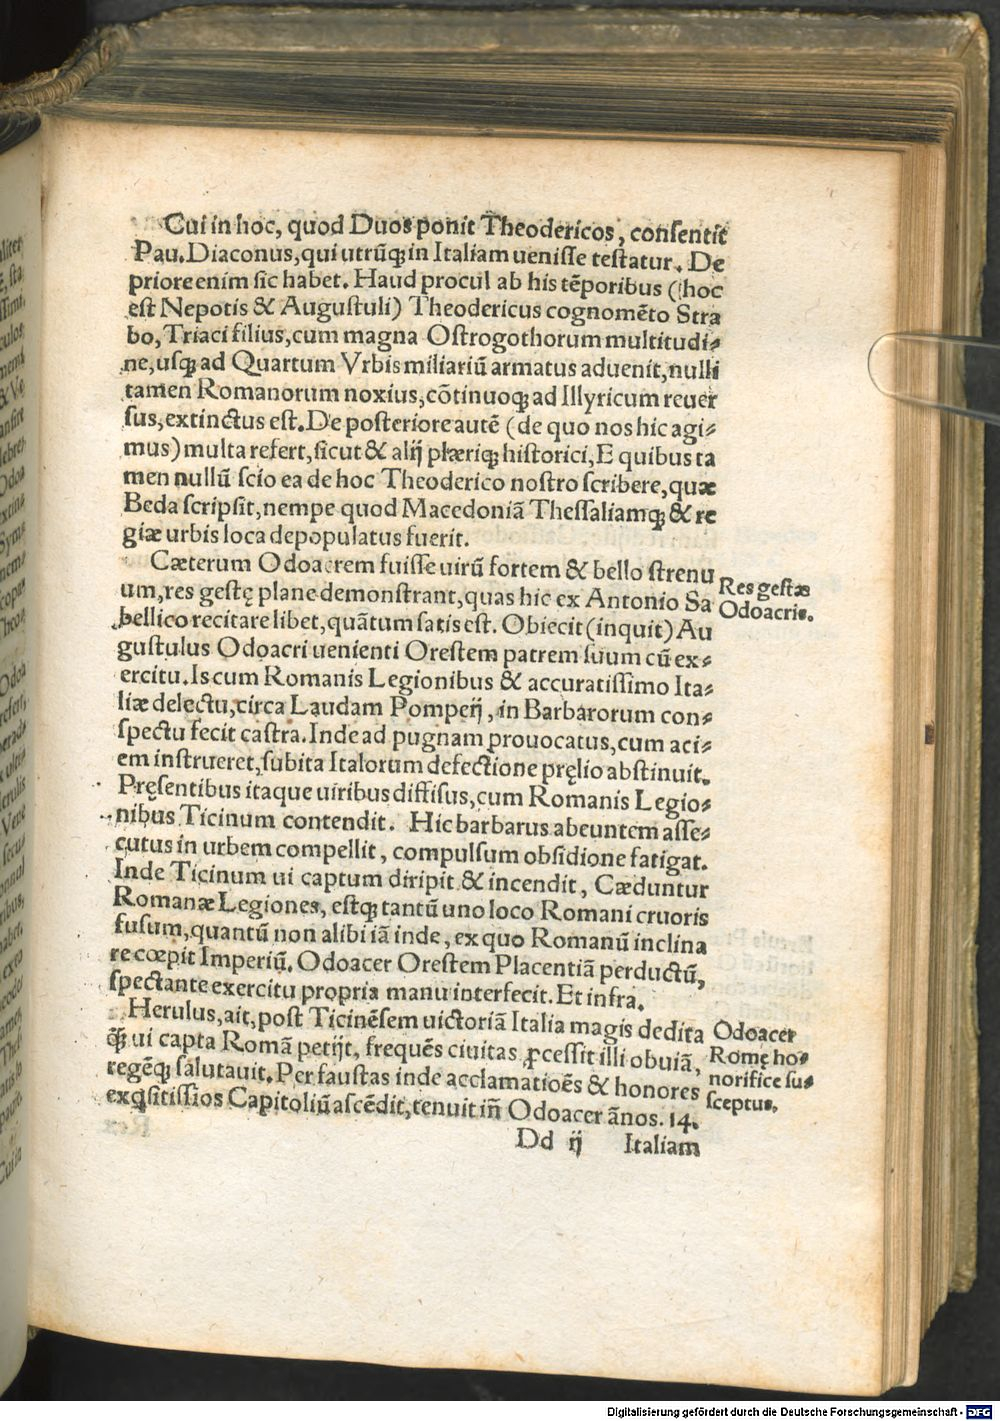 Cui in hoc, quod Duos ponit Theodericos, consentit
Pau. Diaconus, qui utrũq; in Italiam uenisse testatur. De
priore enim sic habet. Haud procul ab his tẽporibus (hoc
est Nepotis & Augustuli) Theodericus cognomẽto Stra
bo, Triaci filius, cum magna Ostrogothorum multitudi⸗
ne, usq; ad Quartum Vrbis miliariũ armatus aduenit, nulli
tamen Romanorum noxius, cõtinuoq; ad Illyricum reuer
sus, extinctus est. De posteriore autẽ (de quo nos hic agi⸗
mus) multa refert, sicut & alij plæriq; historici, E quibus ta
men nullũ scio ea de hoc Theoderico nostro scribere, quæ
Beda scripsit, nempe quod Macedoniã Thessaliamq; & re
giæ urbis loca depopulatus fuerit.
Cæterum Odoacrem fuisse uirũ fortem & bello strenu
um, res gestę plane demonstrant, quas hic ex Antonio Sa
bellico recitare libet, quãtum satis est. Obiecit (inquit) Au
gustulus Odoacri uenienti Orestem patrem suum cũ ex⸗
ercitu. Is cum Romanis Legionibus & accuratissimo Ita⸗
liæ delectu, circa Laudam Pompeij, in Barbarorum con⸗
spectu fecit castra. Inde ad pugnam prouocatus, cum aci⸗
em instrueret, subita Italorum defectione pręlio abstinuit.
Pręsentibus itaque uiribus diffisus, cum Romanis Legio⸗
nibus Ticinum contendit. Hic barbarus abeuntem asse⸗
cutus in urbem compellit, compulsum obsidione fatigat.
Inde Ticinum ui captum diripit & incendit, Cæduntur
Romanæ Legiones, estq; tantũ uno loco Romani cruoris
fusum, quantũ non alibi iã inde, ex quo Romanũ inclina
re cœpit Imperiũ. Odoacer Orestem Placentiã perductũ,
spectante exercitu propria manu interfecit. Et infra.
Herulus, ait, post Ticinẽsem uictoriã Italia magis dedita
q̃ ui capta Romã petijt, frequẽs ciuitas ꝓcessit illi obuiã,
regẽq; salutauit. Per faustas inde acclamatioẽs & honores
exq̃sitissios Capitoliũ ascẽdit, tenuit iñ Odoacer ãnos. 14.
Dd ij Italiam
Res gestæ
Odoacris.
Odoacer
Romę ho⸗
norifice su⸗
sceptus.
Digitalisierung gefördert durch die Deutsche Forschungsgemeinschaft - DFG